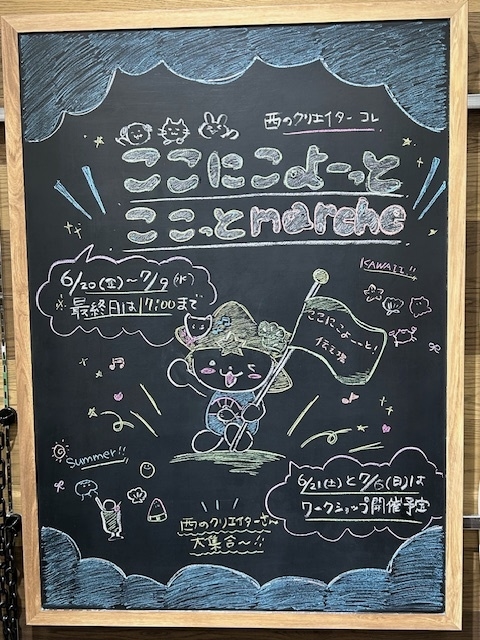 西のクリエイター コレ
ここにこよーっと
ここっとmarche
6/20(金)〜7/9(水)
最終日は17:00まで
KAWAII!!
ここにこよーっと!
Summer!!
6/21(土)と7/6(日)は
ワークショップ開催予定
西のクリエイターさん
大集合〜!!